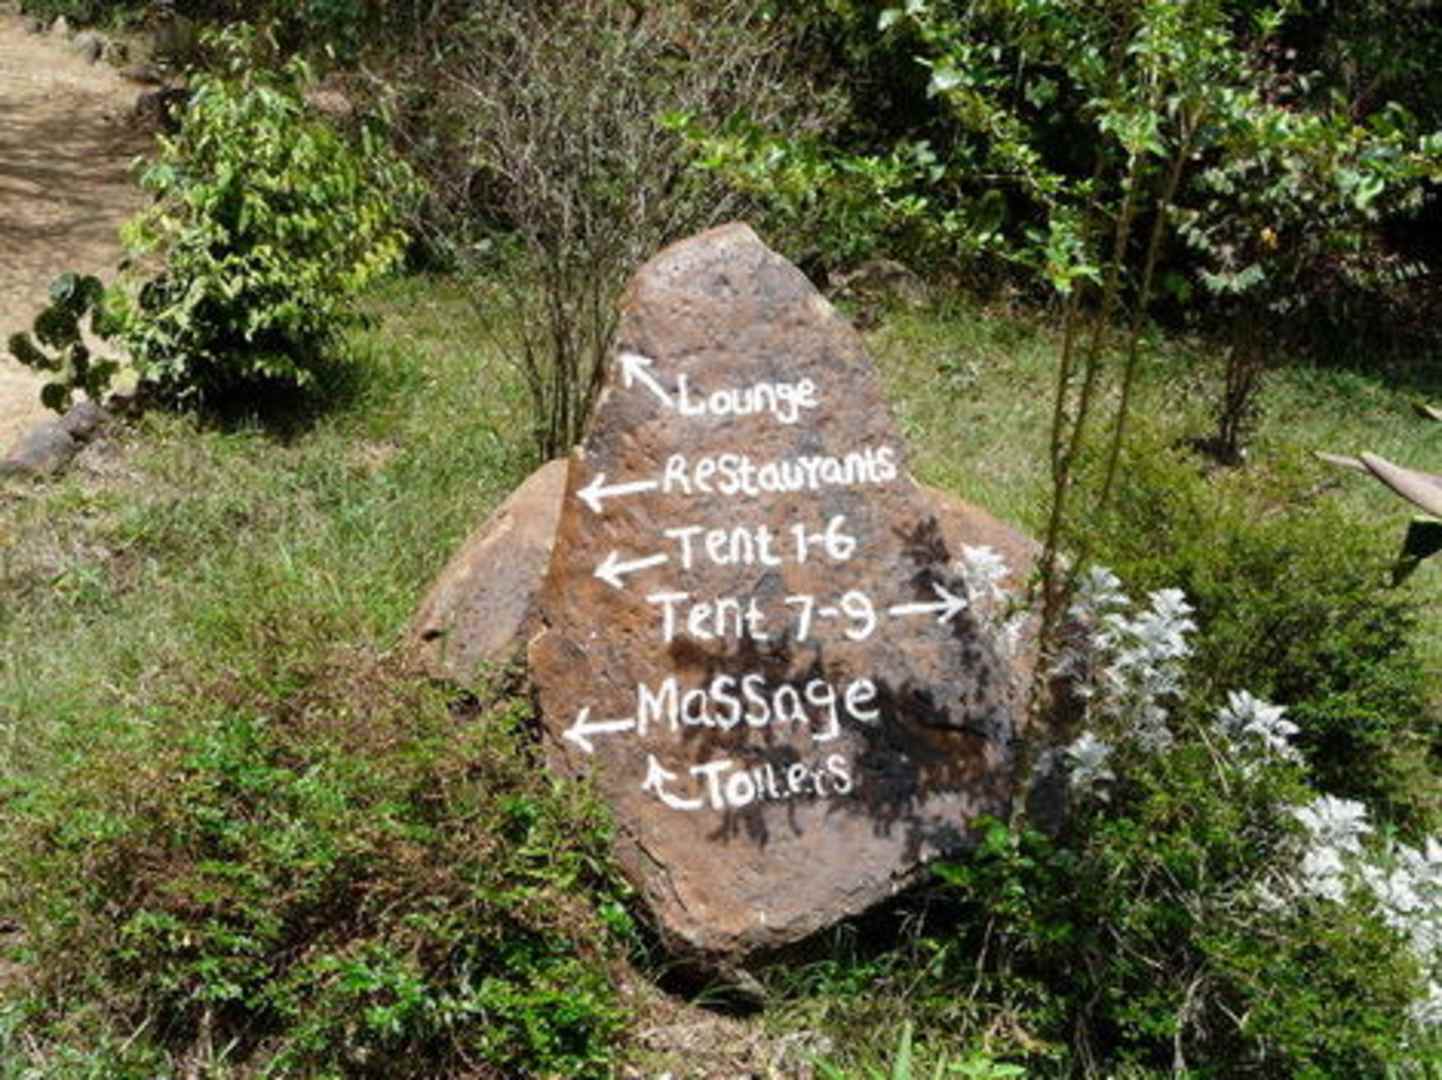 Lounge
Restaurants
Tent 1-6
Tent 7-9
Massage
Toilets